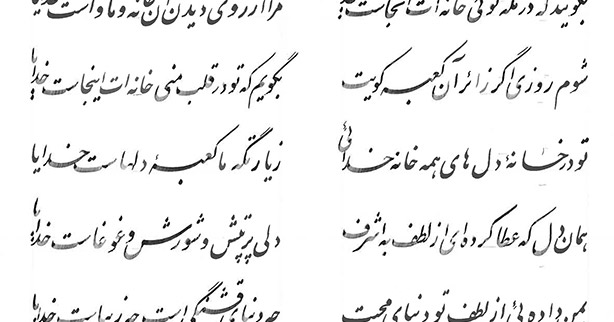 بگویند که در مکه تویی خانه ات آنجاست خدایا
مرا آرزوی دیدن آن خانه و ماواست خدایا
شوم روزی اگر زائر آن کعبه کویت
بگویم که تو در قلب منی خانه ات اینجاست خدایا
تو در خانهٔ دل های همه خانه خدائی
زیارتگه ما کعبهٔ دلهاست خدایا
همان دل که عطا کرده ای از لطف به اشرف
دلی پر تپش و شورش و غوغاست خدایا
بمن داده ئی از لطف تو دنیای محبت
چه دنیای قشنگی است چه زیباست خدایا